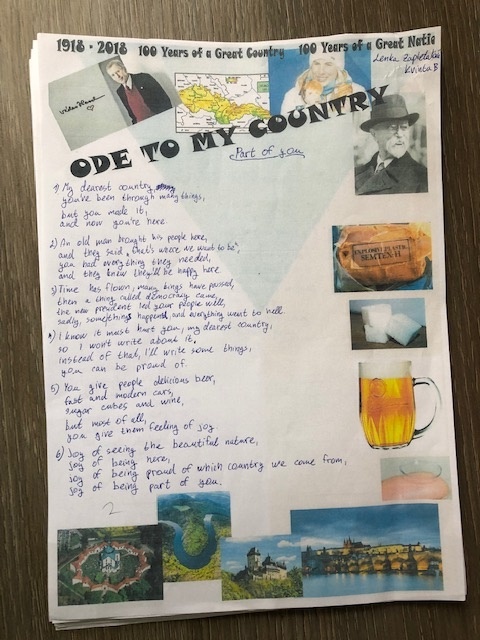 1918 - 2018 100 Years of a Great Country 100 Years of a Great Natio
Kvinta B
Václav Havel
ODE TO MY COUNTRY
Part of you
1) My dearest country,
you've been through many things,
but you made it,
and now you're here.
2) An old man brought his people here,
and they said „that's where we want to be",
you had everything they needed,
and they knew they'll be happy here
3) Time has flown, many kings have passed,
then a thing called democracy came,
the new president led your people well,
sadly, somethings happend, and everything went to hell.
4) I know it must hurt you, my dearest country,
so I won't write about it.
instead of that, I'll write some things,
you can be proud of.
5) You give people delicious beer,
fast and modern cars,
sugar cubes and wine,
but most of all,
you give them feeling of joy
6) Joy of seeing the beautiful nature,
joy of being here,
joy of being proud of which country we come from,
joy of being part of you.
2
EXPLOSIVE PLASTIC
SEMTEX-H